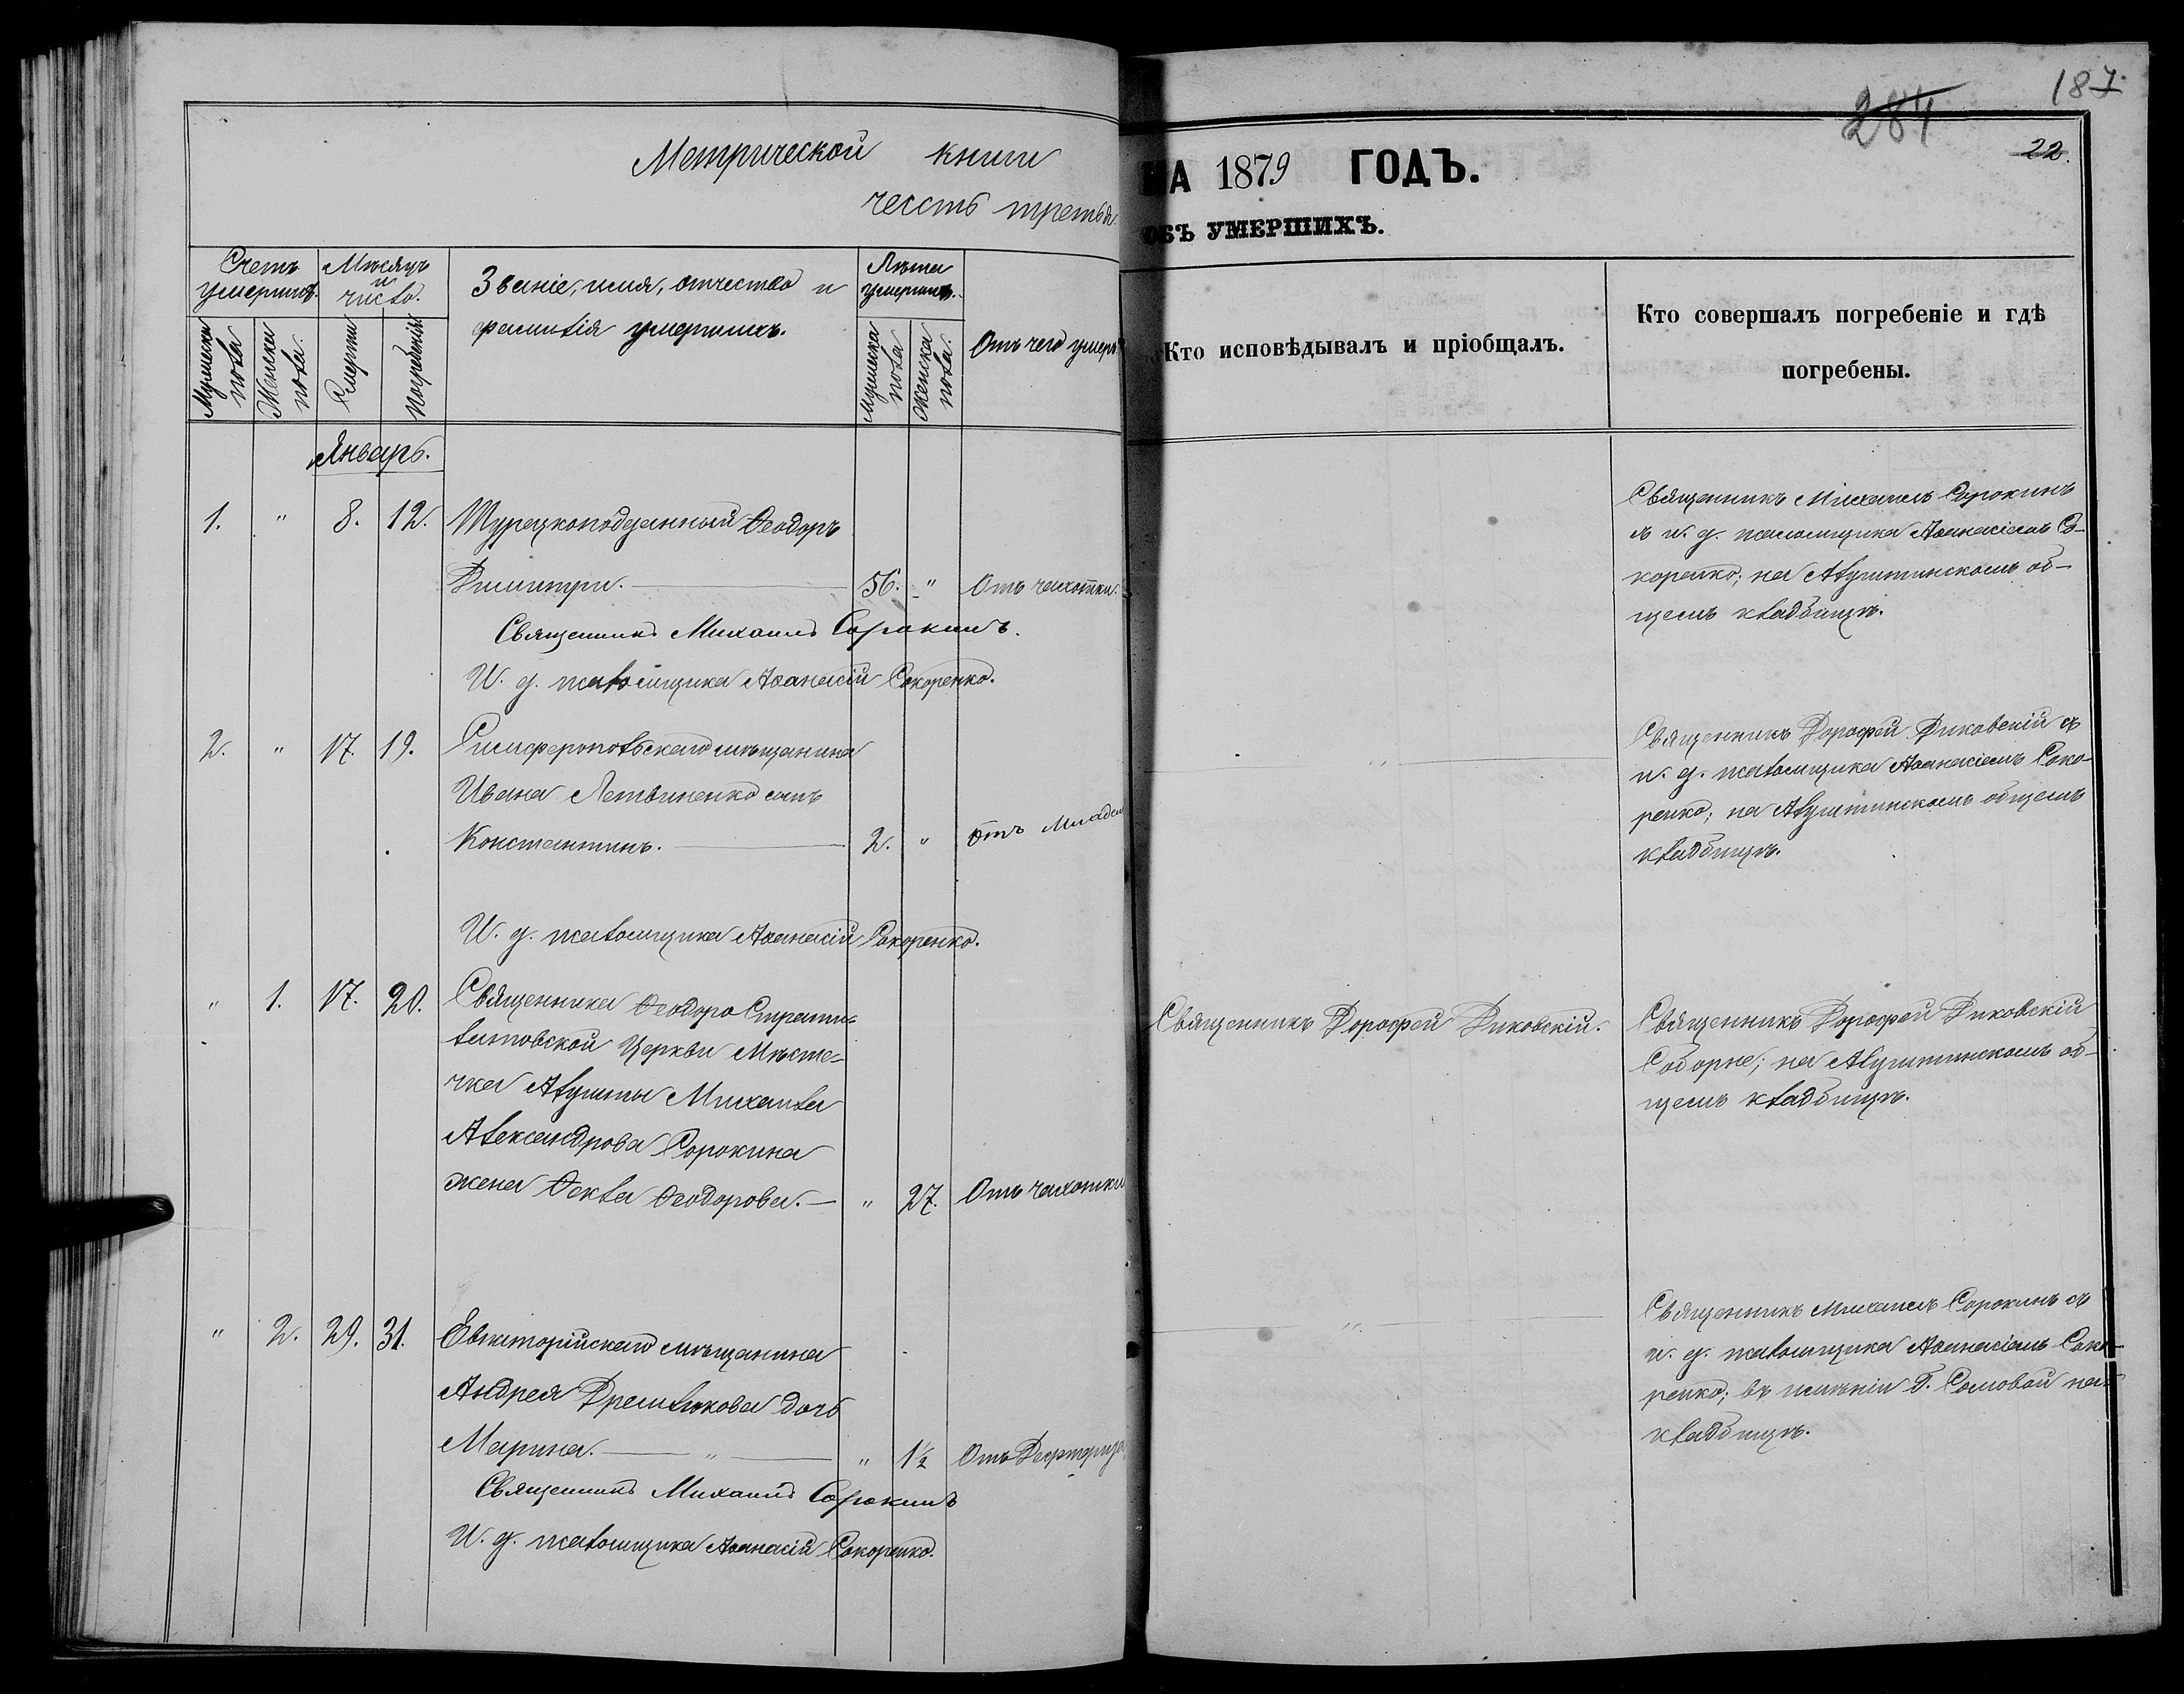 Метрической книги
часть третья
187.
284
22.
НА 1879 ГОДЪ.
ОБЪ УМЕРШИХЪ.
Счетъ умершихъ.
Мужеска пола
Женска пола.
Мѣсяцъ и число.
Смерти
Погребенія
Званіе, имя, отчество и
фамилія умершихъ.
Лѣта умершихъ.
Мужеска пола
Женска пола.
Отъ чего умеръ
Кто исповѣдывалъ и пріобщалъ.
Кто совершалъ погребеніе и гдѣ
погребены.
Январь.
1. " 8. 12. Турецкоподданный Ѳеодоръ
Димитри. 56. " Отъ чахотки.
Священникъ Михаилъ Сорокинъ.
И. д. псаломщика Аѳанасій Сокоренко.
Священникъ Михаилъ Сорокинъ
съ и. д. псаломщика Аѳанасіемъ Со-
коренко; на Алуштинскомъ об-
щемъ кладбищѣ.
2. " 17. 19. Симферопольскаго мѣщанина
Ивана Летвиненко сынъ
Константинъ. 2. " Отъ Младен
И. д. псаломщика Аѳанасій Сокоренко.
"
Священникъ Дорофей Диковскій съ
и. д. псаломщика Аѳанасіемъ Соко-
ренко; на Алуштинскомъ общемъ
кладбищѣ.
" 1. 17. 20. Священника Ѳеодоро Страти-
латовской Церкви Мѣсте-
чка Алушты Михаила
Александрова Сорокина
жена Ѳекла Ѳеодорова. " 27. Отъ чахотки
Священникъ Дорофей Диковскій.
Священникъ Дорофей Диковскій
Соборне; на Алуштинскомъ об-
щемъ кладбищѣ.
" 2. 29. 31. Евпаторійскаго мѣщанина
Андрея Дремлюкова дочь
Марина. " " 1½ Отъ Дефтерита
Священникъ Михаилъ Сорокинъ
И. д. псаломщика Аѳанасій Сокоренко.
"
Священникъ Михаилъ Сорокинъ съ
и. д. псаломщика Аѳанасіемъ Соко-
ренко; въ имѣніи Г. Сомовой на
кладбищѣ.